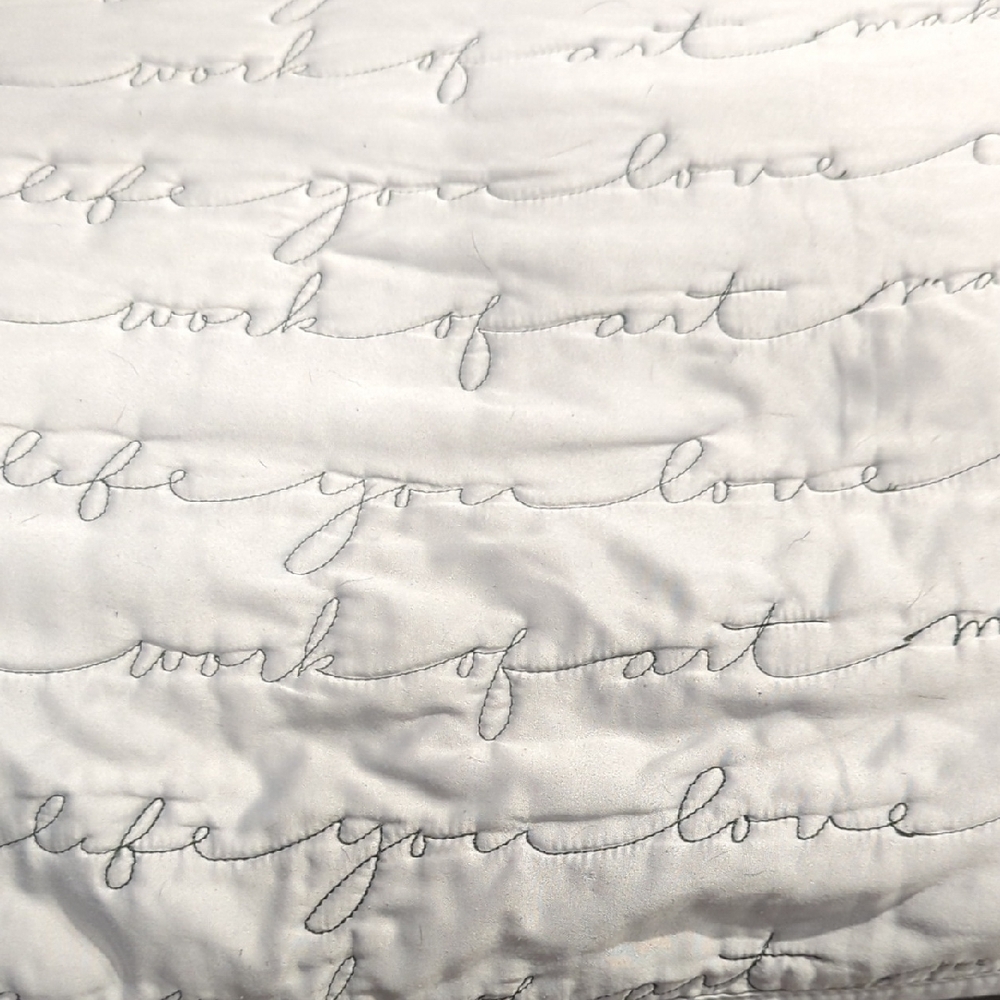 work of art mak
life you love
work of art ma
life you love
work of art m
life you love
art